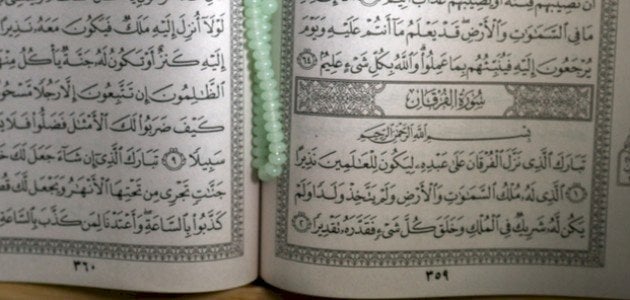 أَن تُصِيبَهُمْ فِتْنَةٌ أَوْ يُصِيبَهُمْ عَذَابٌ
مَا فِي ٱلسَّمَٰوَٰتِ وَٱلْأَرْضِ قَدْ يَعْلَمُ مَآ أَنتُمْ عَلَيْهِ وَيَوْمَ
يُرْجَعُونَ إِلَيْهِ فَيُنَبِّئُهُم بِمَا عَمِلُوا۟ وَٱللَّهُ بِكُلِّ شَىْءٍ عَلِيمٌۢ ٦٤
سُورَةُ الْفُرْقَانِ
بِسْمِ ٱللَّهِ ٱلرَّحْمَٰنِ ٱلرَّحِيمِ
تَبَارَكَ ٱلَّذِى نَزَّلَ ٱلْفُرْقَانَ عَلَىٰ عَبْدِهِۦ لِيَكُونَ لِلْعَٰلَمِينَ نَذِيرًا
١ ٱلَّذِى لَهُۥ مُلْكُ ٱلسَّمَٰوَٰتِ وَٱلْأَرْضِ وَلَمْ يَتَّخِذْ وَلَدًا وَلَمْ
يَكُن لَّهُۥ شَرِيكٌ فِى ٱلْمُلْكِ وَخَلَقَ كُلَّ شَىْءٍ فَقَدَّرَهُۥ تَقْدِيرًا ٢
٣٥٩
لَوْلَآ أُنزِلَ إِلَيْهِ مَلَكٌ فَيَكُونَ مَعَهُۥ نَذِيرًا
إِلَيْهِ كَنزٌ أَوْ تَكُونُ لَهُۥ جَنَّةٌ يَأْكُلُ مِنْهَا
ٱلظَّٰلِمُونَ إِن تَتَّبِعُونَ إِلَّا رَجُلًا
كَيْفَ ضَرَبُوا۟ لَكَ ٱلْأَمْثَٰلَ فَضَلُّوا۟ فَلَا
سَبِيلًا ٩ تَبَارَكَ ٱلَّذِىٓ إِن شَآءَ جَعَلَ لَكَ
جَنَّٰتٍ تَجْرِى مِن تَحْتِهَا ٱلْأَنْهَٰرُ وَيَجْعَل لَّكَ
كَذَّبُوا۟ بِٱلسَّاعَةِ وَأَعْتَدْنَا لِمَن كَذَّبَ بِٱلسَّاعَةِ
٣٦٠